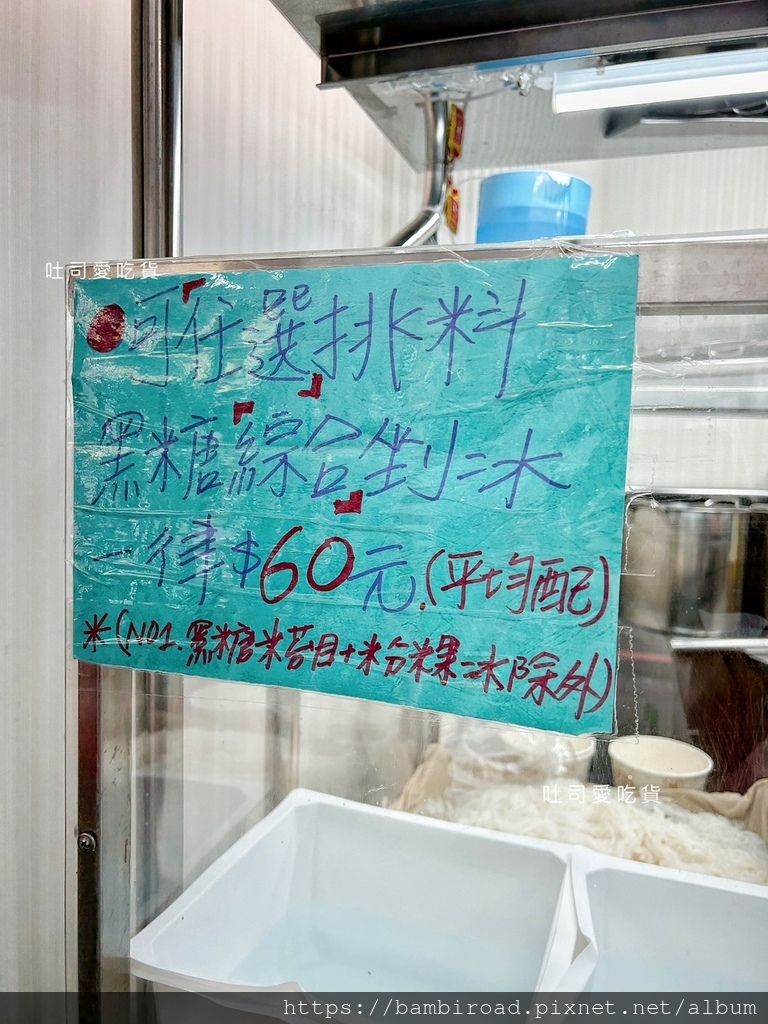 吐司愛吃貨
●可「任選」排料
黑糖「綜合」剉冰
一律$60元.(平均配)
※(NO1.黑糖米苔目+粉粿冰除外)
吐司愛吃貨
https://bambiroad.pixnet.net/album